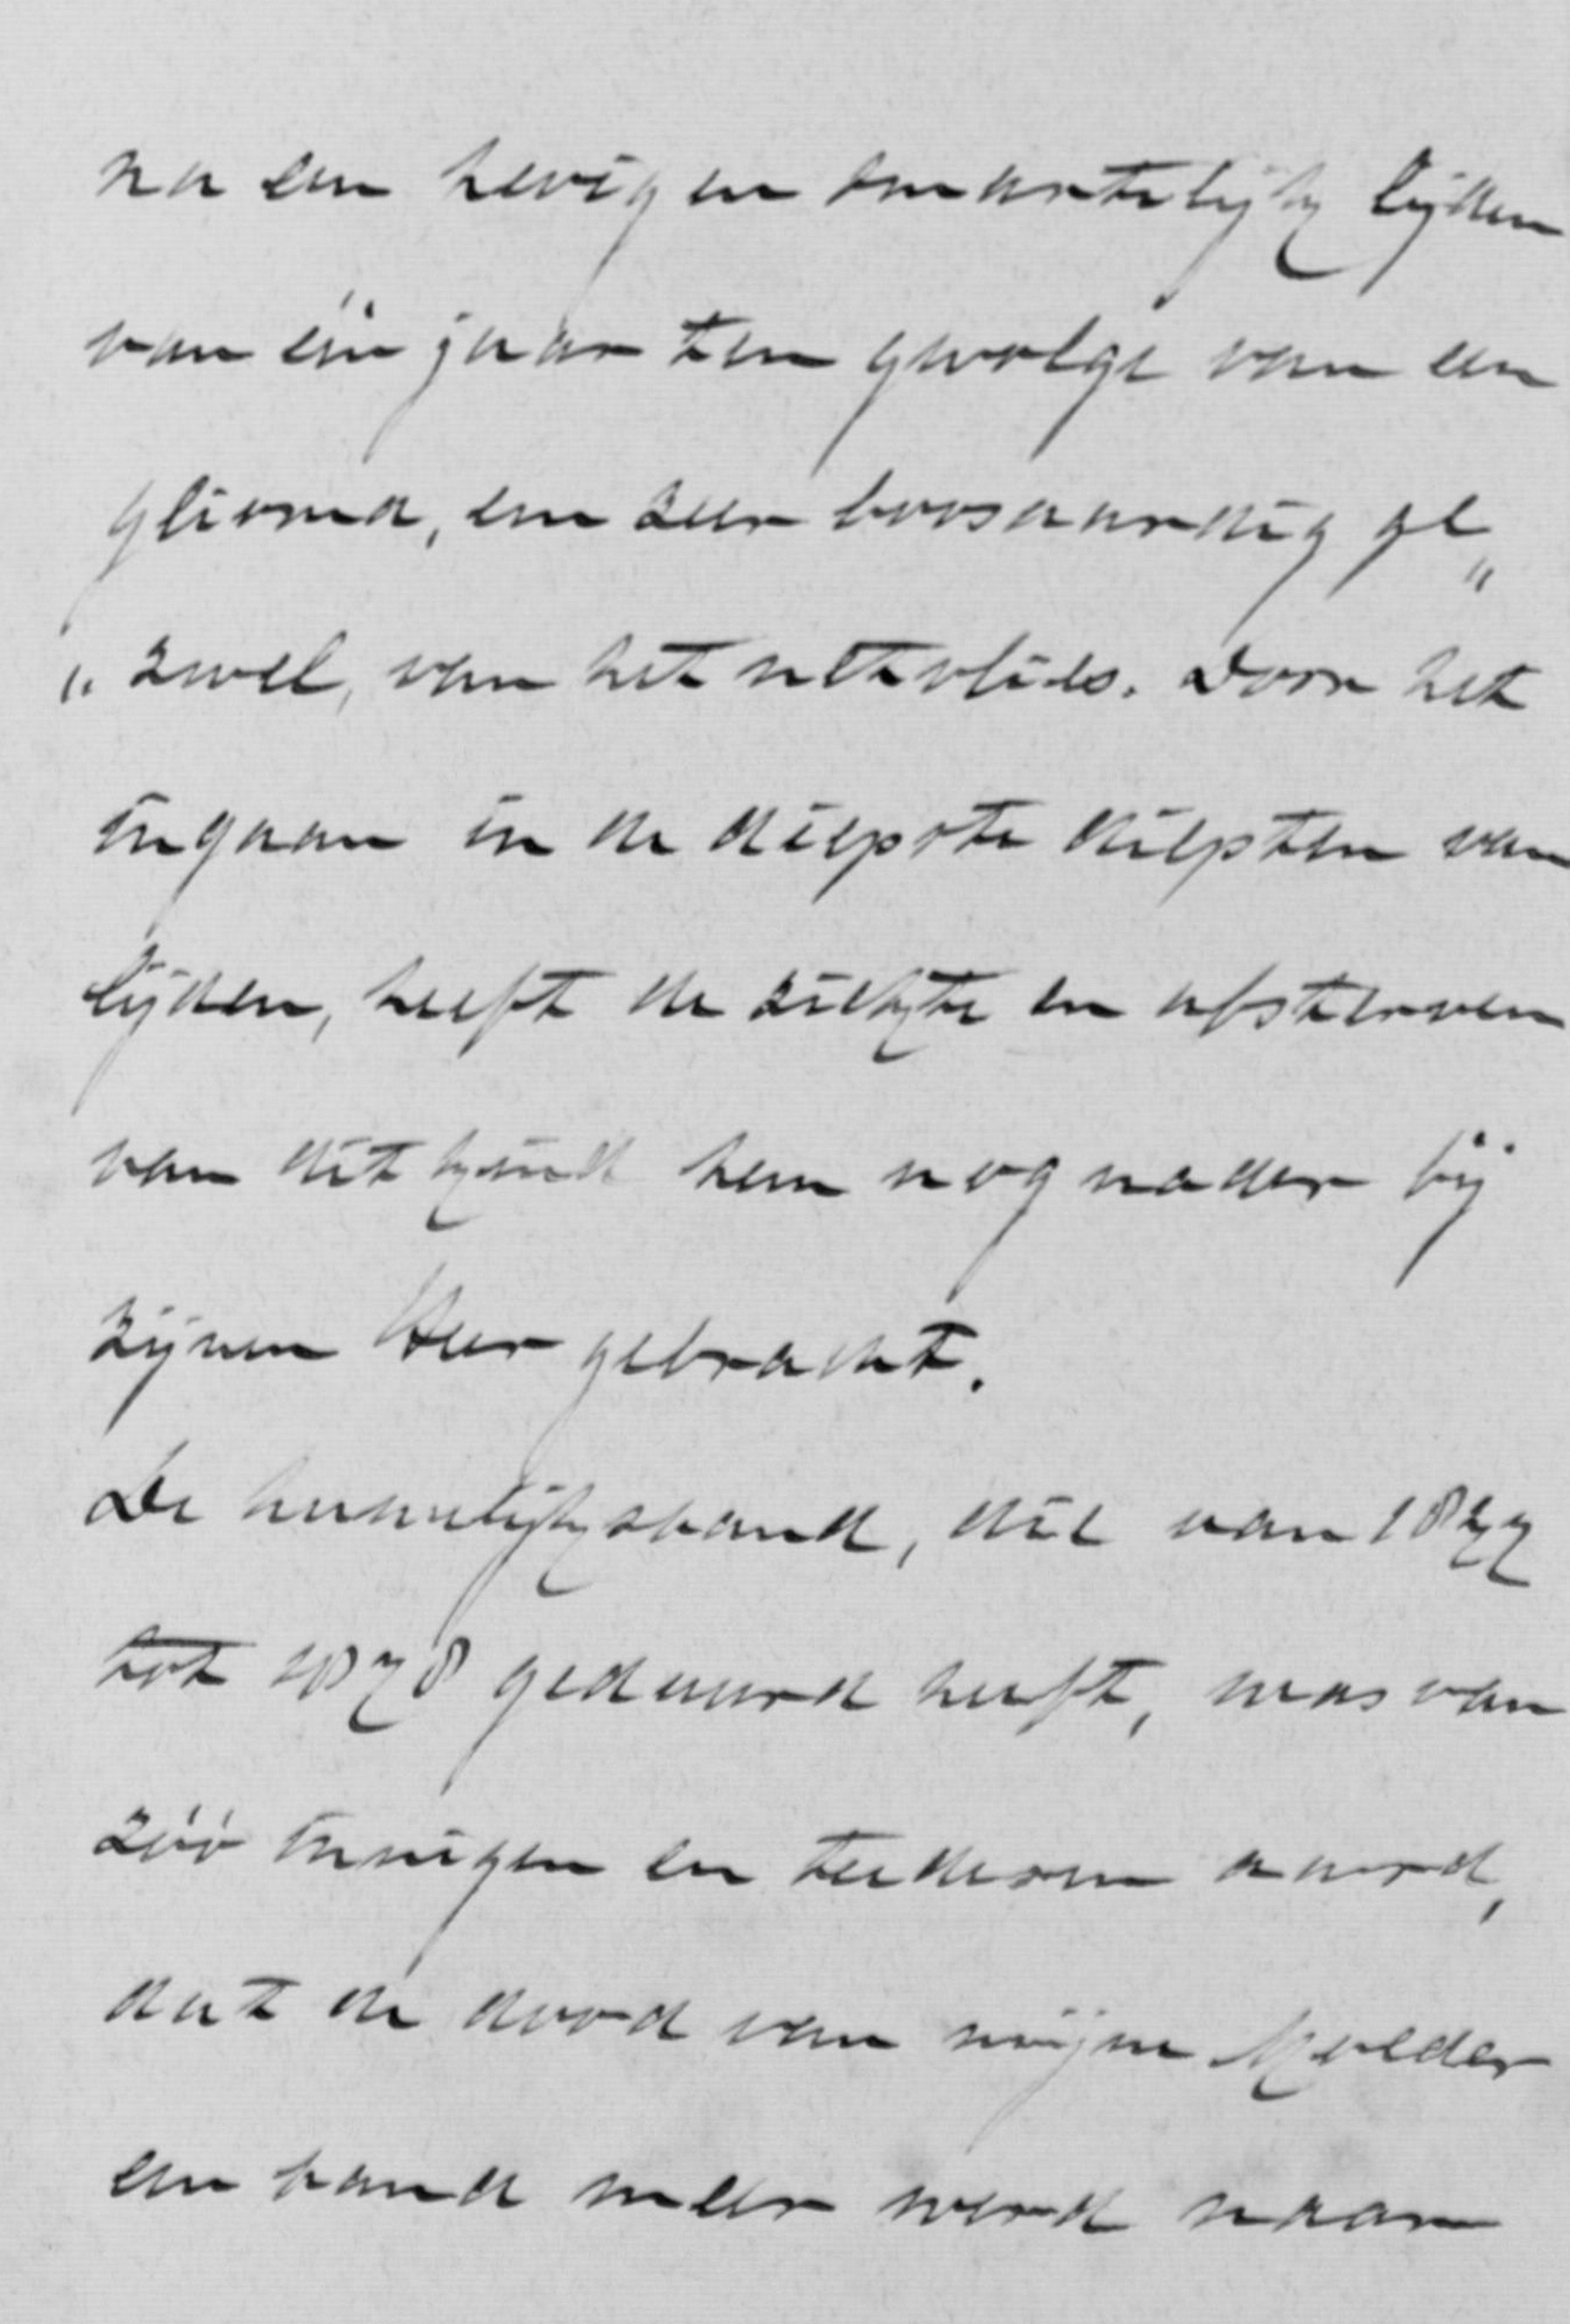 na een hevigen smartelijk lijden
van één jaar ten gevolge van een
glioma, een zeer boosaardig ge„
„zwel, van het netvlies. Door het
ingaan in de diepste diepten van
lijden, heeft de ziekte en afsterven
van dit kind hem nog nader bij
zijnen Heer gebracht.
De huwelijksband, die van 1877
tot 1878 geduurd heeft, was van
zóó innigen en teederen aard,
dat de dood van mijne Moeder
een band meer werd naar